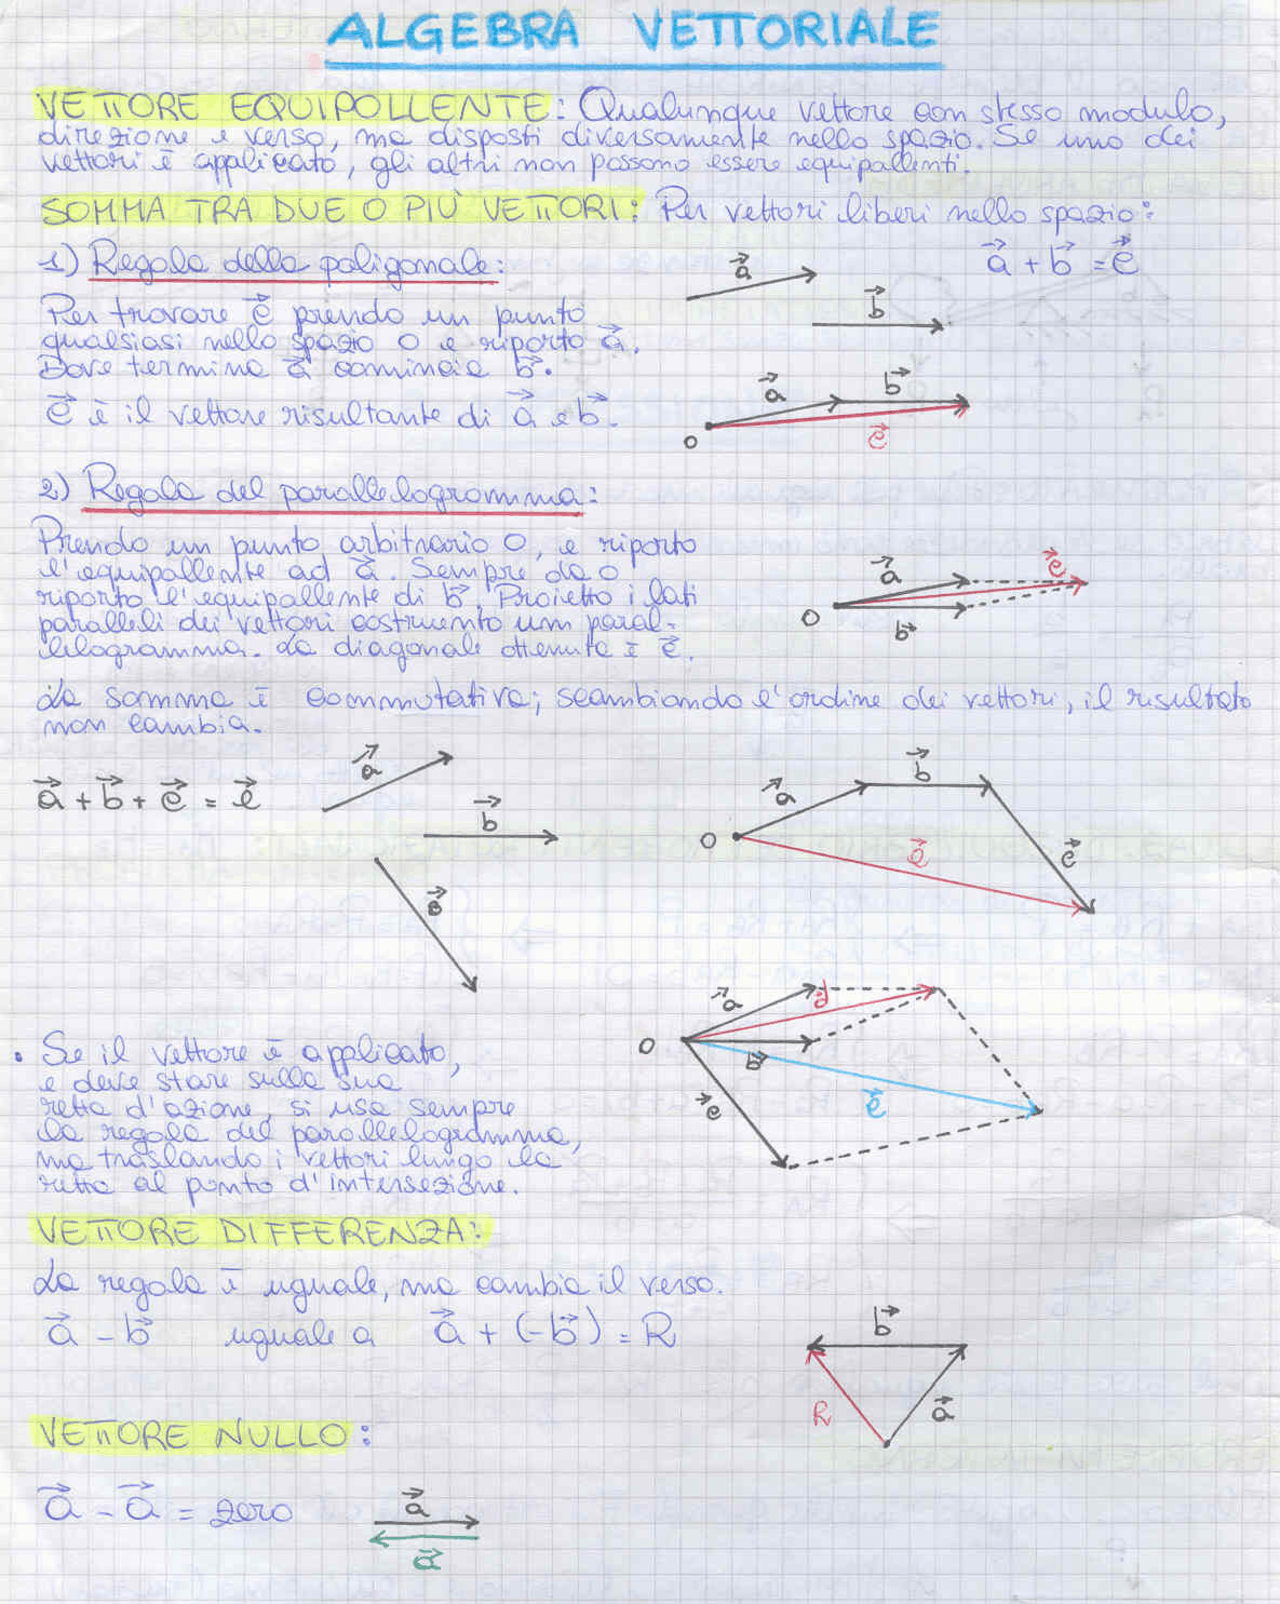 ALGEBRA VETTORIALE
VETTORE EQUIPOLLENTE: Qualunque vettore con stesso modulo,
direzione e verso, ma disposti diversamente nello spazio. Se uno dei
vettori è applicato, gli altri non possono essere equipollenti.
SOMMA TRA DUE O PIÙ VETTORI: Per vettori liberi nello spazio:
1) Regola della poligonale:
a⃗ + b⃗ = c⃗
a⃗
b⃗
Per trovare c⃗ prendo un punto
qualsiasi nello spazio O e riporto a⃗.
Dove termina a⃗ comincia b⃗.
c⃗ è il vettore risultante di a⃗ e b⃗.
a⃗ b⃗
O c⃗
2) Regola del parallelogramma:
Prendo un punto arbitrario O, e riporto
l'equipollente ad a⃗. Sempre da O
riporto l'equipollente di b⃗. Proietto i lati
paralleli dei vettori costruento um paral-
lelogramma. La diagonale ottenuta è c⃗.
a⃗ c⃗
O b⃗
La somma è commutativa; scambiando l'ordine dei vettori, il risultato
non cambia.
a⃗ + b⃗ + c⃗ = e⃗
a⃗
b⃗
c⃗
a⃗ b⃗
O e⃗ c⃗
a⃗ d⃗
O b⃗
c⃗ e⃗
• Se il vettore è applicato,
e deve stare sulla sua
retta d'azione, si usa sempre
la regola del parallelogramma,
ma traslando i vettori lungo la
retta al punto d'intersezione.
VETTORE DIFFERENZA:
La regola è uguale, ma cambia il verso.
a⃗ - b⃗ uguale a a⃗ + (-b⃗) = R
b⃗
R a⃗
VETTORE NULLO:
a⃗ - a⃗ = zero
a⃗
a⃗